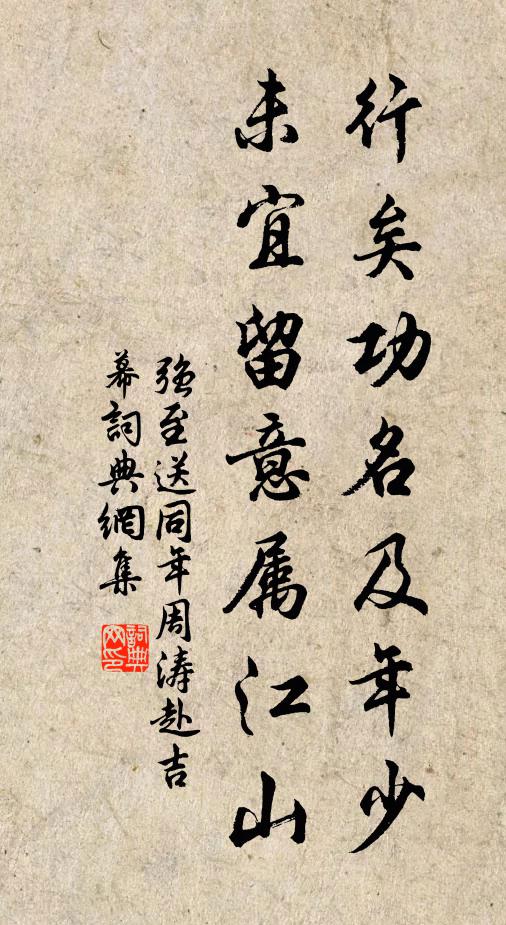 行矣功名及年少
未宜留意属江山
強至送同年周濤赴吉
幕詞典網集
詞典
网印